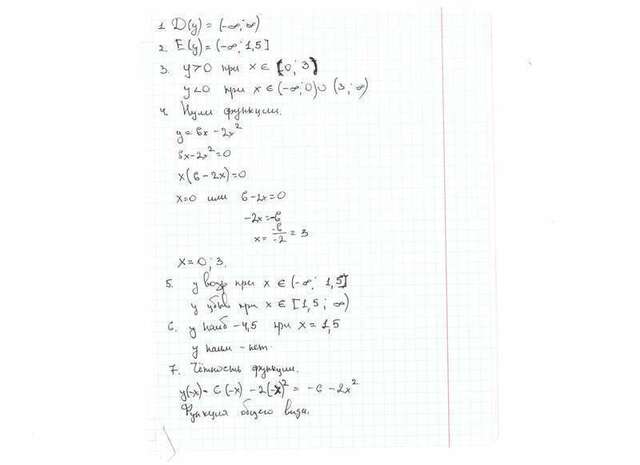 1. D(y) = (-∞; ∞)
2. E(y) = (-∞; 1,5]
3. y>0 при x ∈ (0; 3)
y<0 при x ∈ (-∞; 0) ∪ (3; ∞)
4. Нули функции.
y = 6x - 2x²
6x - 2x² = 0
x(6 - 2x) = 0
x=0 или 6-2x=0
-2x=-6
x = -6/-2 = 3
x = 0; 3.
5. y возр при x ∈ (-∞; 1,5]
y убыв при x ∈ [1,5; ∞)
6. y наиб - 4,5 при x = 1,5
y наим - нет.
7. Чётность функции.
y(-x) = 6(-x) - 2(-x)² = -6 - 2x²
Функция общего вида.